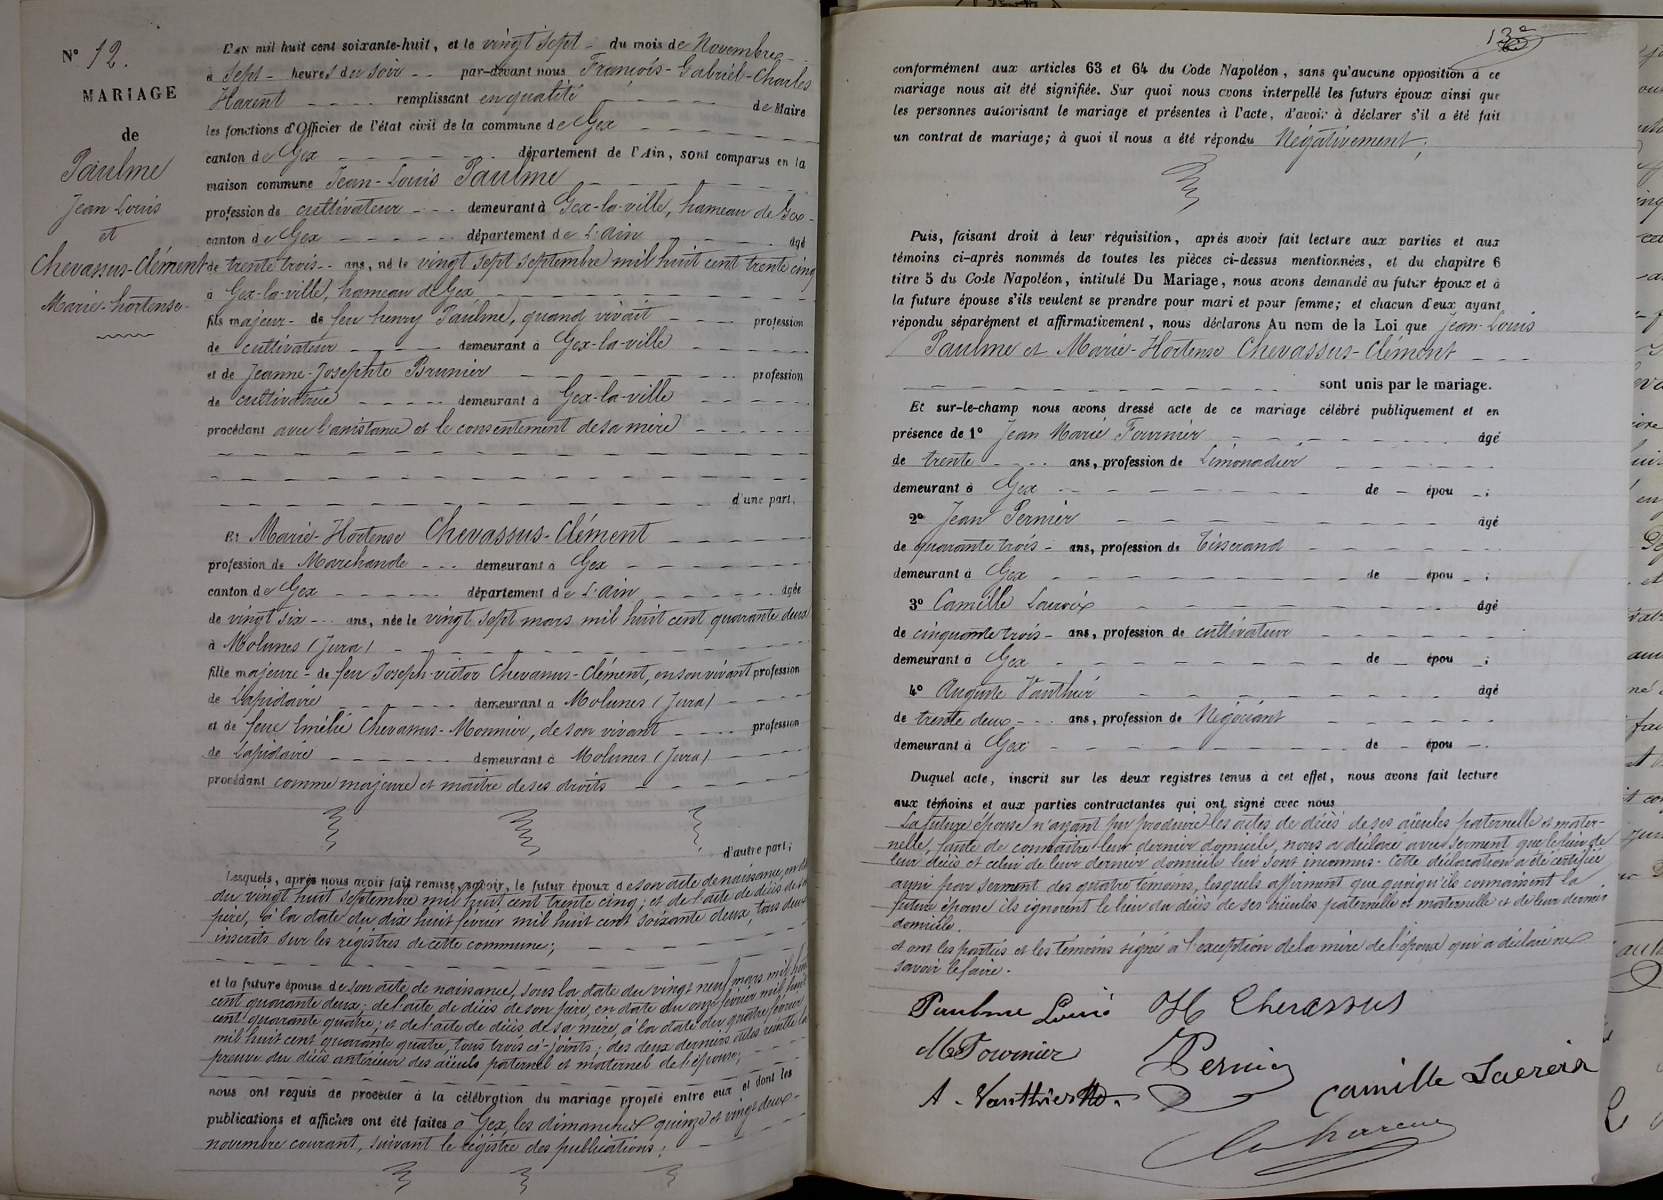 N° 12.
MARIAGE
de
Paulme
Jean Louis
et
Chevassus-Clément
Marie-hortense
L'AN mil huit cent soixante-huit, et le vingt sept du mois de Novembre
à sept heures du soir par-devant nous François-Gabriel-Charles
Harent remplissant en qualité de Maire
les fonctions d'Officier de l'état civil de la commune de Gex
canton de Gex département de l'Ain, sont comparus en la
maison commune Jean-Louis Paulme
profession de cultivateur demeurant à Gex-la-ville, hameau de Gex
canton de Gex département de L'ain âgé
de trente trois ans, né le vingt sept septembre mil huit cent trente cinq
à Gex-la-ville, hameau de Gex
fils majeur de feu henry Paulme, quand vivait profession
de cultivateur demeurant à Gex-la-ville
et de Jeanne-Josephte Brunier profession
de cultivatrice demeurant à Gex-la-ville
procédant avec l'assistance et le consentement de sa mère
d'une part.
Et Marie-Hortense Chevassus-Clément
profession de Marchande demeurant à Gex
canton de Gex département de L'ain âgée
de vingt six ans, née le vingt sept mars mil huit cent quarante deux
à Molunes (Jura)
fille majeure de feu Joseph-victor Chevassus-Clément, en son vivant profession
de Lapidaire demeurant à Molunes (Jura)
et de feue Emélie Chevassus-Monnier, de son vivant profession
de Lapidaire demeurant à Molunes (Jura)
procédant comme majeure et maître de ses droits
d'autre part;
Lesquels, après nous avoir fait remise, savoir, le futur époux de son acte de naissance, en date
du vingt huit septembre mil huit cent trente cinq; et de l'acte de décès de son
père, à la date du dix huit février mil huit cent soixante deux, tous deux
inscrits sur les régistres de cette commune;
et la future épouse de son acte de naissance, sous la date du vingt neuf mars mil huit
cent quarante deux; de l'acte de décès de son père, en date du onze février mil huit
cent quarante quatre; et de l'acte de décès de sa mère, à la date du quatre février
mil huit cent quarante quatre, tous trois ci-joints; des deux derniers actes résulte la
preuve du décès antérieur des aïeuls paternel et maternel de l'épouse;
nous ont requis de procéder à la célébration du mariage projeté entre eux et dont les
publications et affiches ont été faites à Gex, les dimanches quinze et vingt deux
novembre courant, suivant le régistre des publications;
conformément aux articles 63 et 64 du Code Napoléon, sans qu'aucune opposition à ce
mariage nous ait été signifiée. Sur quoi nous avons interpellé les futurs époux ainsi que
les personnes autorisant le mariage et présentes à l'acte, d'avoir à déclarer s'il a été fait
un contrat de mariage; à quoi il nous a été répondu Négativement;
Puis, faisant droit à leur réquisition, après avoir fait lecture aux parties et aux
témoins ci-après nommés de toutes les pièces ci-dessus mentionnées, et du chapitre 6
titre 5 du Code Napoléon, intitulé Du Mariage, nous avons demandé au futur époux et à
la future épouse s'ils veulent se prendre pour mari et pour femme; et chacun d'eux ayant
répondu séparément et affirmativement, nous déclarons Au nom de la Loi que Jean-Louis
Paulme et Marie-Hortense Chevassus-Clément
sont unis par le mariage.
Et sur-le-champ nous avons dressé acte de ce mariage célébré publiquement et en
présence de 1° Jean Marie Fournier âgé
de trente ans, profession de Limonadier
demeurant à Gex de épou ;
2° Jean Pernier âgé
de quarante trois ans, profession de Tisserand
demeurant à Gex de épou ;
3° Camille Lacroix âgé
de cinquante trois ans, profession de cultivateur
demeurant à Gex de épou ;
4° Auguste Vauthier âgé
de trente deux ans, profession de Négociant
demeurant à Gex de épou .
Duquel acte, inscrit sur les deux registres tenus à cet effet, nous avons fait lecture
aux témoins et aux parties contractantes qui ont signé avec nous
La future épouse n'ayant pu produire les actes de décès de ses aïeules paternelle et mater-
nelle, faute de connaître leur dernier domicile, nous a déclaré avec serment que le lieu de
leur décès et celui de leur dernier domicile lui sont inconnus. Cette déclaration a été certifiée
aussi par serment des quatre témoins, lesquels affirment que quoiqu'ils connaissent la
future épouse ils ignorent le lieu du décès de ses aïeules paternelle et maternelle et de leur dernier
domicile.
et ont les parties et les témoins signé à l'exception de la mère de l'époux qui a déclaré ne
savoir le faire.
Paulme Louis H Chevassus
M Fournier Pernier
A. Vauthier Camille Lacroix
Ch Harent